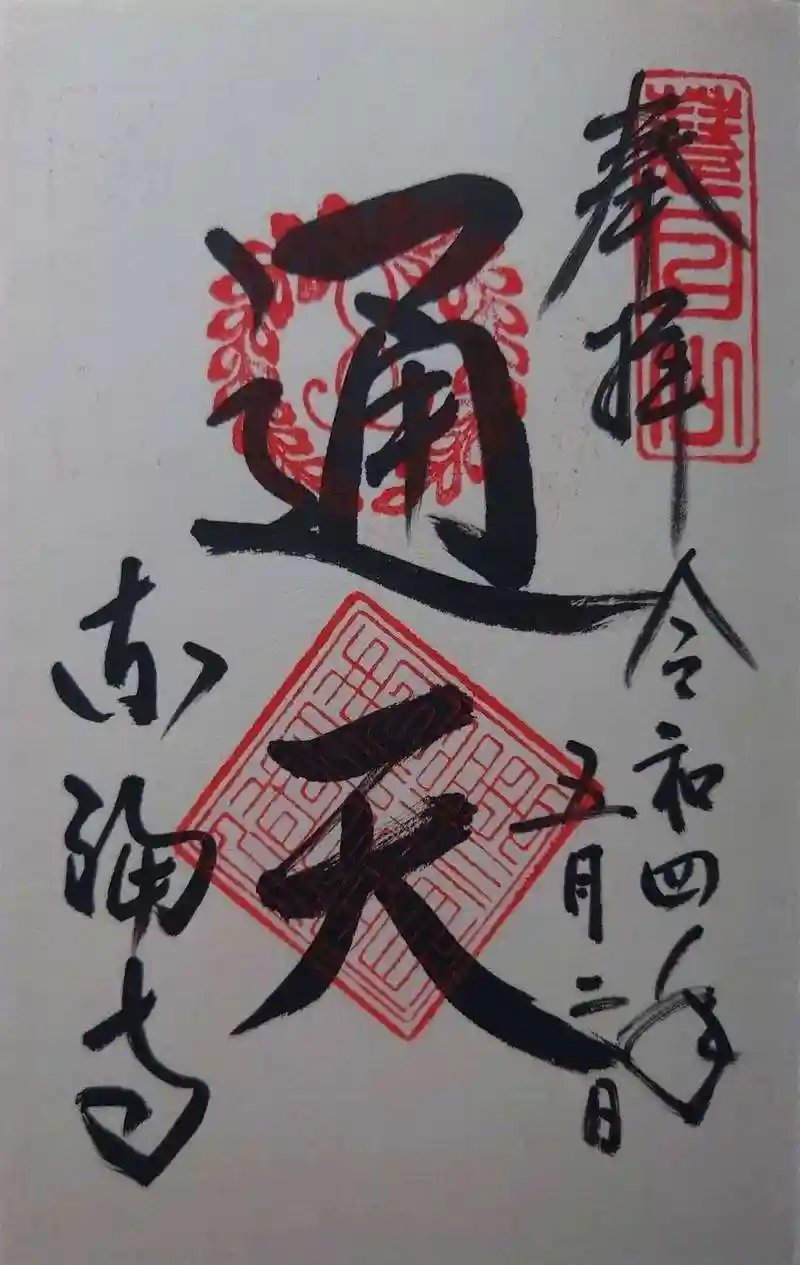 奉拝
令和四年
五月二日
通天
東福寺